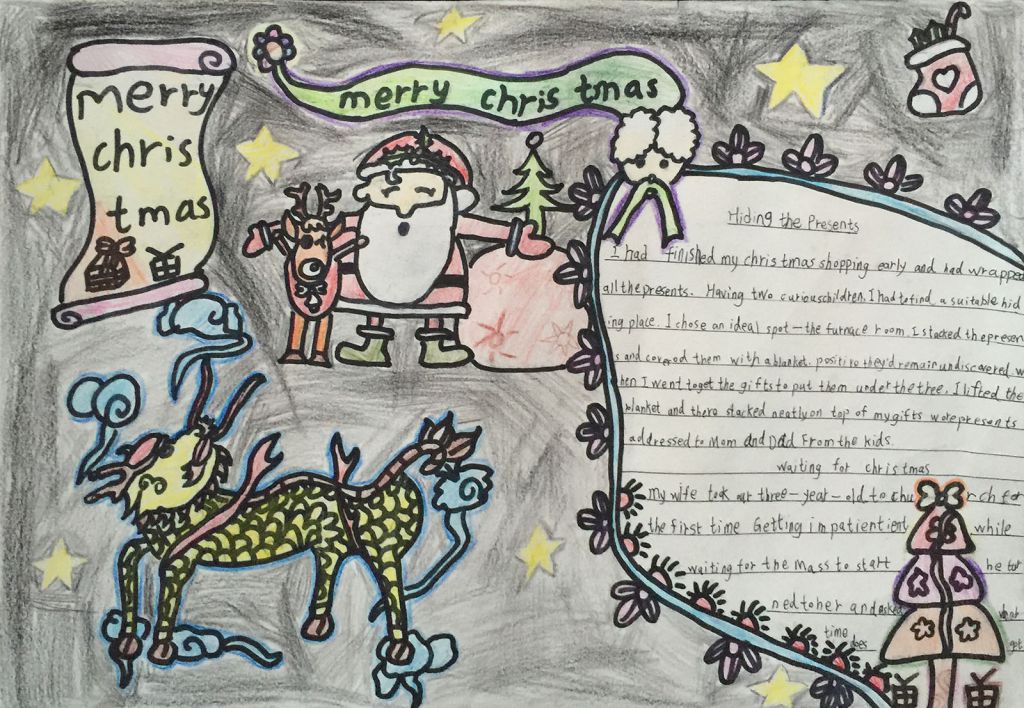 merry
chris
tmas
merry chris tmas
Hiding the Presents
I had finished my christmas shopping early and had wrapped
all the presents. Having two curious children, I had to find a suitable hid
ing place. I chose an ideal spot—the furnace room. I stacked the presen
s and covered them with a blanket. positive they'd remain undiscovered. w
hen I went to get the gifts to put them under the tree, I lifted the
blanket and there stacked neatly on top of my gifts were presents
addressed to Mom and Dad From the kids.
waiting for christmas
my wife took our three-year-old to chu rch for
the first time Getting impatientient while
waiting for the mass to start he tur
ned to her and asked what
time does get